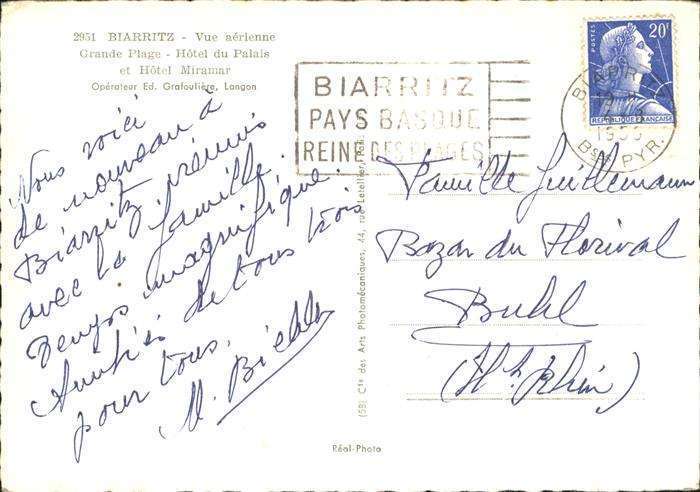 2951 BIARRITZ - Vue aérienne
Grande Plage - Hôtel du Palais
et Hôtel Miramar
Opérateur Ed. Grafoulière, Langon
Nous voici
de nouveau à
Biarritz réunis
avec la famille.
Temps magnifique.
Amitiés de tous trois
pour tous.
M. Biehler
BIARRITZ
PAYS BASQUE
REINE DES PLAGES
POSTES
20F
REPUBLIQUE FRANÇAISE
BIARRITZ
Bses PYR.
Famille Guillemann
Bazar du Florival
Buhl
(Ht Rhin)
(59) Cie des Arts Photomécaniques, 44, rue Letellier, Paris
Réal-Photo